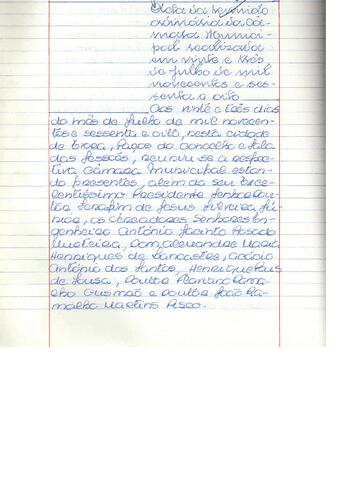 Acta da reunião
ordinária da Câ-
mara Munici-
pal realizada
em vinte e três
de julho de mil
novecentos e ses-
senta e oito
Aos vinte e três dias
do mês de julho de mil novecen-
tos e sessenta e oito, nesta cidade
de Évora, Paços do Concelho e Sala
das Sessões, reuniu-se a respec-
tiva Câmara Municipal estan-
do presentes, além do seu Exce-
lentíssimo Presidente Senhor Dou-
tor Serafim de Jesus Silveira Jú-
nior, os Vereadores Senhores En-
genheiro António Jacinto Rosado
Dom Alexandre Maria
Henriques de Lancastre,
António dos Santos, Henrique
de Sousa, Doutor Rama-
lho Gusmão e Doutor João Ra-
malho Martins Pisco.